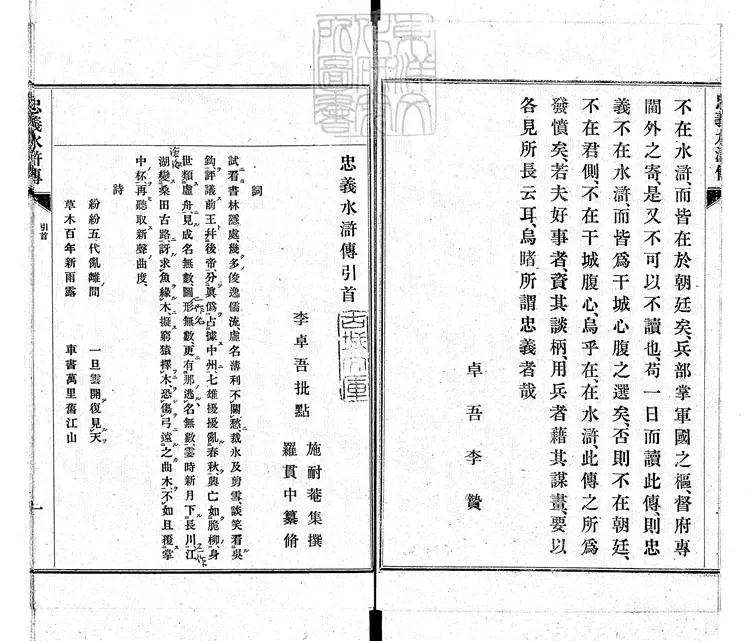 忠義水滸傳
不在水滸、而皆在於朝廷矣、兵部掌軍國之樞、督府專
閫外之寄、是又不可以不讀也、苟一日而讀此傳、則忠
義不在水滸、而皆爲干城心腹之選矣、否則不在朝廷、
不在君側、不在干城腹心、烏乎在、在水滸、此傳之所爲
發憤矣、若夫好事者、資其談柄、用兵者藉其謀畫、要以
各見所長云耳、烏睹所謂忠義者哉
卓吾李贄
東洋文化研究所圖書
忠義水滸傳引首
李卓吾批點
施耐菴集撰
羅貫中纂脩
詞
試看書林隱處幾多俊逸儒流、虛名薄利不關愁、裁氷及剪雪、談笑看吳
鈎、評議前王幷後帝、分眞僞占據中州、七雄擾擾亂春秋、興亡如脆柳、身
世類虛舟、見成名無數、圖形無數、更有那逃名無數、霎時新月下長川、江
湖變桑田古路、訝求魚緣木、擬窮猿擇木、恐傷弓遠之曲木、不如且覆掌
中杯、再聽取新聲曲度、
詩
紛紛五代亂離間 一旦雲開復見天
草木百年新雨露 車書萬里舊江山
忠義水滸傳
引首
一